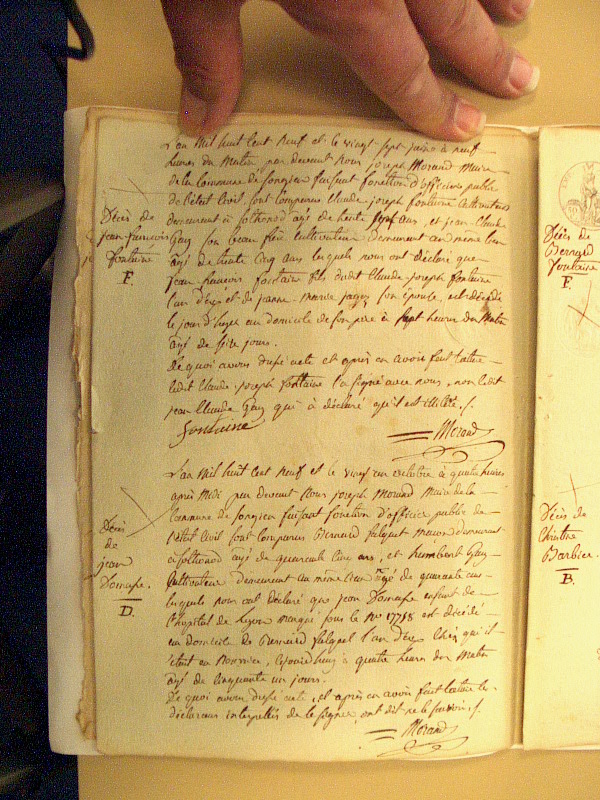 L'an Mil huit Cent Neuf et le vingt sept juin à neuf
heures du Matin par devant Nous joseph Morand Maire
de la Commune de Songieu faisant fonction d'officier public
de l'état Civil, sont Comparus Claude joseph fontaine Cultivateur
demeurant à Sothonod agé de trente sept ans, et jean Claude
Gay son beau frère Cultivateur demeurant au même lieu
agé de trente Cinq ans lesquels nous ont déclaré que
jean francois fontaine fils dudit Claude joseph fontaine
l'un d'eux et de jeanne marie son épouse, est décédé
le jour d'hyer au domicile de son père à sept heures du Matin
agé de seize jours.
De quoi avons dressé acte et après en avoir fait lecture
ledit Claude joseph fontaine l'a signé avec nous, non ledit
jean Claude Gay qui à déclaré qu'il est illitéré ./.
fontaine
Morand
Décès de
jean francois
fontaine
F.
L'an Mil huit Cent Neuf et le vingt un octobre à quatre heures
après Midi par devant Nous joseph Morand Maire de la
Commune de Songieu faisant fonction d'officier public de
l'état Civil sont Comparus Bernard Masson demeurant
à Sothonod agé de quarante cinq ans, et humbert Gay
Cultivateur demeurant au même lieu agé de quarante ans
lesquels nous ont déclaré que jean Domase enfant de
l'hopital de Lyon marqué sous le No 17758 est décédé
au domicile de Bernard l'un d'eux Chez qui il
étoit en Nourrice, cejourdhuy à quatre heures du Matin
agé de Cinquante un jours.
De quoi avons dressé acte, et après en avoir fait lecture les
déclarans interpellés de le signer, ont dit ne le savoir ./.
Morand
Décès
de
jean
Domase.
D.
Décès de
Bernard
fontaine
F.
Décès de
Christine
Barbier.
B.